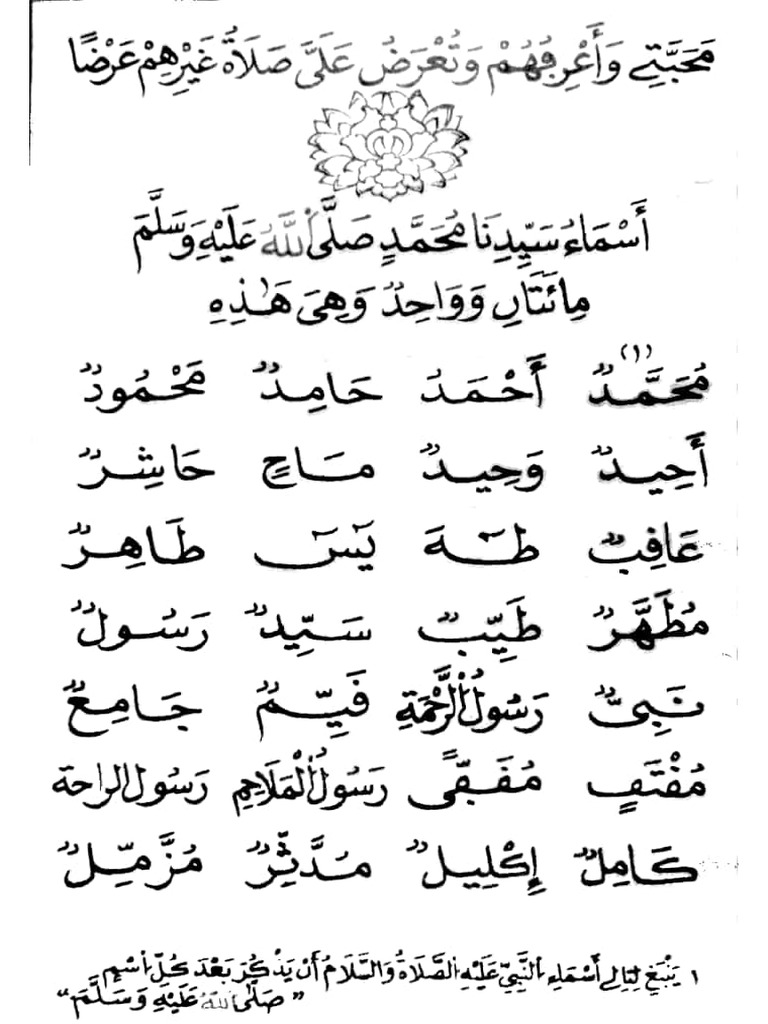 مَحَبَّتِي وَأَعْرِفُهُمْ وَتُعْرَضُ عَلَيَّ صَلَاةُ غَيْرِهِمْ عَرْضًا
أَسْمَاءُ سَيِّدِنَا مُحَمَّدٍ صَلَّى اللَّهُ عَلَيْهِ وَسَلَّمَ
مِائَتَانِ وَوَاحِدٌ وَهِيَ هَٰذِهِ
مُحَمَّدٌ (١) أَحْمَدُ حَامِدٌ مَحْمُودٌ
أَحِيدٌ وَحِيدٌ مَاحٍ حَاشِرٌ
عَاقِبٌ طَهَ يَسَ طَاهِرٌ
مُطَهَّرٌ طَيِّبٌ سَيِّدٌ رَسُولٌ
نَبِيٌّ رَسُولُ الرَّحْمَةِ قَيِّمٌ جَامِعٌ
مُقْتَفٍ مُقَفًّى رَسُولُ الْمَلَاحِمِ رَسُولُ الراحة
كَامِلٌ إِكْلِيلٌ مُدَّثِّرٌ مُزَّمِّلٌ
١ يَنْبَغِ لِتَالِي أَسْمَاءِ النَّبِيِّ عَلَيْهِ الصَّلَاةُ وَالسَّلَامُ أَنْ يَذْكُرَ بَعْدَ كُلِّ اسْمٍ
” صَلَّى اللَّهُ عَلَيْهِ وَسَلَّمَ “